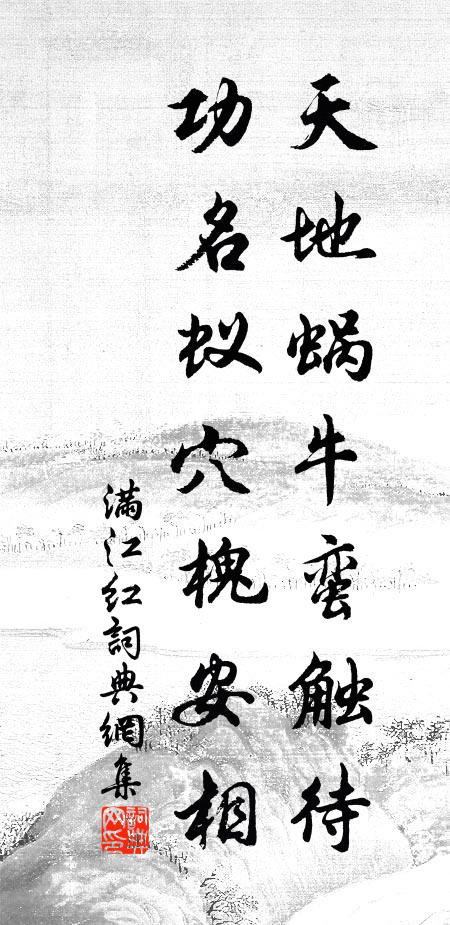 天地蜗牛蛮触待
功名蚁穴槐安相
满江红詞典網集